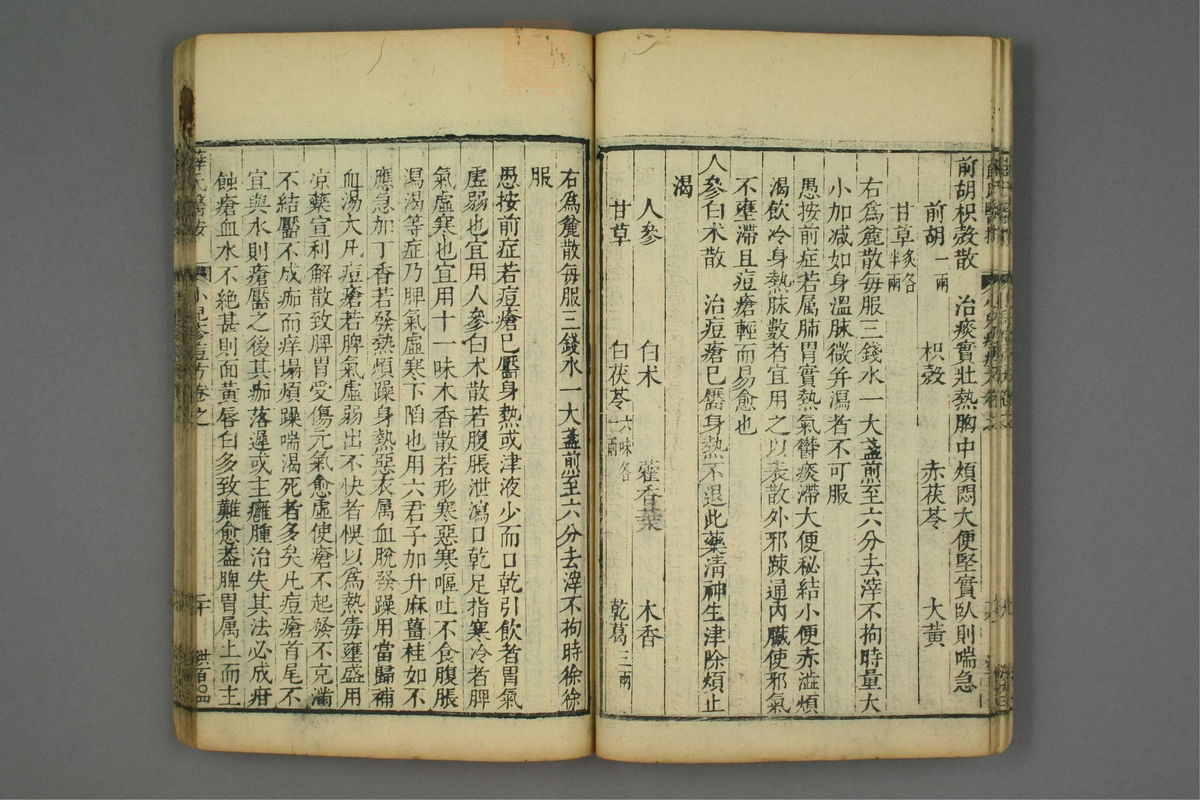 前胡枳殻散　治痰實壯熱胸中煩悶大便堅實臥則喘急
前胡一兩　枳殻　赤茯苓　大黃
甘草炙各半兩
右爲麄散每服三錢水一大盞煎至六分去滓不拘時量大
小加減如身溫脉微并瀉者不可服
愚按前症若属肺胃實熱氣欝痰滯大便秘結小便赤澁煩
渴飲冷身熱脉數者宜用之以表散外邪踈通內臟使邪氣
不壅滯且痘瘡輕而易愈也
人參白术散　治痘瘡已靨身熱不退此藥淸神生津除煩止
渴
人參　白术　藿香葉　木香
甘草　白茯苓六味各一兩　乾葛二兩
右爲麄散每服三錢水一大盞煎至六分去滓不拘時徐徐
服
愚按前症若痘瘡已靨身熱或津液少而口乾引飲者胃氣
虛弱也宜用人參白术散若腹脹泄瀉口乾足指寒冷者脾
氣虛寒也宜用十一味木香散若形寒惡寒嘔吐不食腹脹
瀉渴等症乃脾氣虛寒下陷也用六君子加升麻薑桂如不
應急加丁香若發熱煩躁身熱惡衣属血脫發躁用當歸補
血湯大凡痘瘡若脾氣虛弱出不快者悞以爲熱毒壅盛用
凉藥宣利解散致脾胃受傷元氣愈虛使瘡不起發不克滿
不結靨不成痂而痒塌煩躁喘渴死者多矣凡痘瘡首尾不
宜與水則瘡靨之後其痂落遲或主癰腫治失其法必成疳
蝕瘡血水不絶甚則面黃唇白多致難愈蓋脾胃属土而主
薛氏醫按　小兒　痘　方卷之　二十　共百〇四